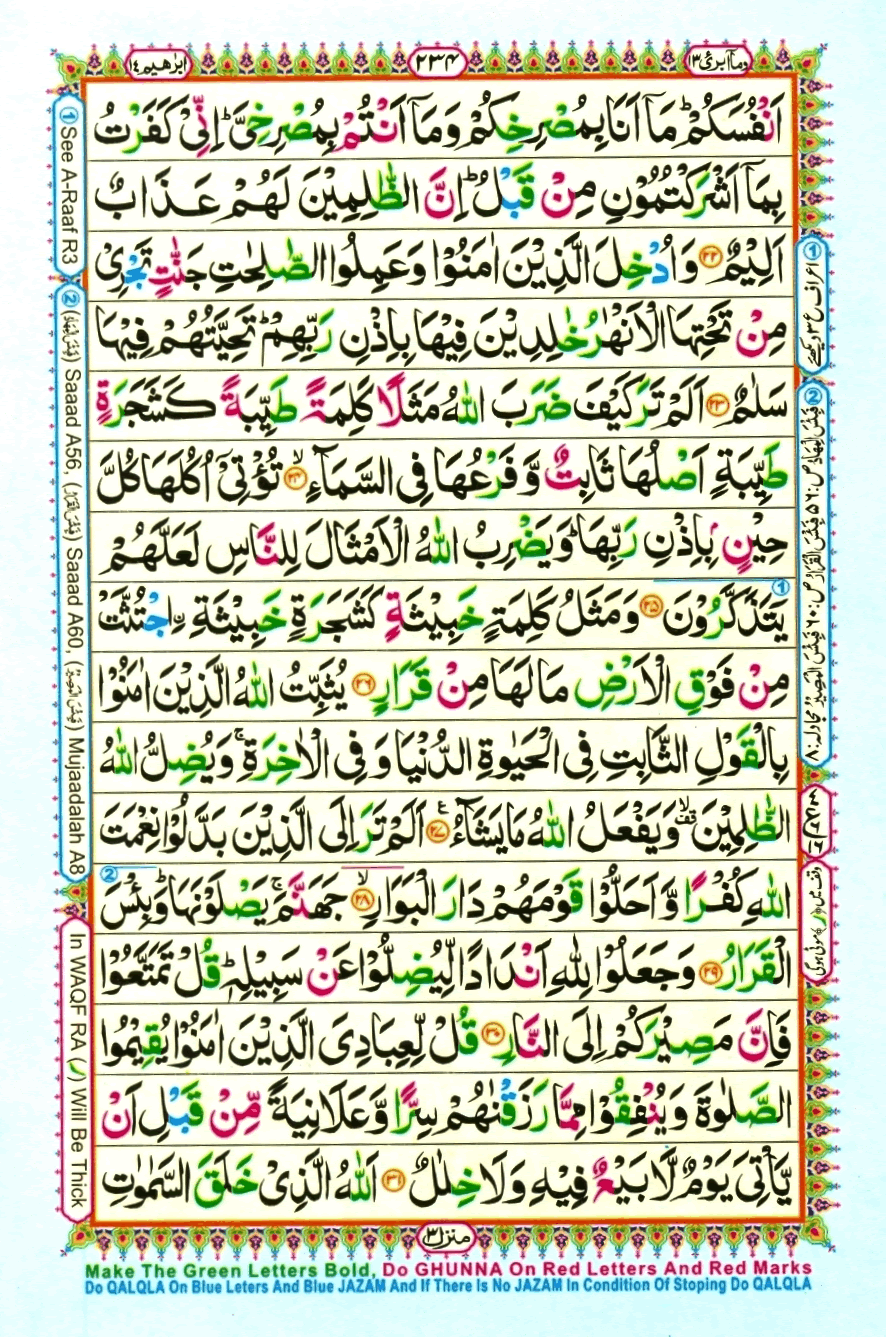 وماۤ ابرئ ١٣
٢٣٤
ابرٰهيم ١٤
اَنْفُسَكُمْ ؕ مَاۤ اَنَا بِمُصْرِخِكُمْ وَمَاۤ اَنْتُمْ بِمُصْرِخِیَّ ؕ اِنِّیْ كَفَرْتُ
بِمَاۤ اَشْرَكْتُمُوْنِ مِنْ قَبْلُ ؕ اِنَّ الظّٰلِمِیْنَ لَهُمْ عَذَابٌ
اَلِیْمٌ ۲۲ وَاُدْخِلَ الَّذِیْنَ اٰمَنُوْا وَعَمِلُوا الصّٰلِحٰتِ جَنّٰتٍ تَجْرِیْ
مِنْ تَحْتِهَا الْاَنْهٰرُ خٰلِدِیْنَ فِیْهَا بِاِذْنِ رَبِّهِمْ ؕ تَحِیَّتُهُمْ فِیْهَا
سَلٰمٌ ۲۳ اَلَمْ تَرَ كَیْفَ ضَرَبَ اللّٰهُ مَثَلًا كَلِمَةً طَیِّبَةً كَشَجَرَةٍ
طَیِّبَةٍ اَصْلُهَا ثَابِتٌ وَّ فَرْعُهَا فِی السَّمَآءِ ۙ ۲۴ تُؤْتِیْۤ اُكُلَهَا كُلَّ
حِیْنٍۭ بِاِذْنِ رَبِّهَا ؕ وَیَضْرِبُ اللّٰهُ الْاَمْثَالَ لِلنَّاسِ لَعَلَّهُمْ
یَتَذَكَّرُوْنَ ۲۵ وَمَثَلُ كَلِمَةٍ خَبِیْثَةٍ كَشَجَرَةٍ خَبِیْثَةِ ِ۟اجْتُثَّتْ
مِنْ فَوْقِ الْاَرْضِ مَا لَهَا مِنْ قَرَارٍ ۲۶ یُثَبِّتُ اللّٰهُ الَّذِیْنَ اٰمَنُوْا
بِالْقَوْلِ الثَّابِتِ فِی الْحَیٰوةِ الدُّنْیَا وَ فِی الْاٰخِرَةِ ۚ وَیُضِلُّ اللّٰهُ
الظّٰلِمِیْنَ ۙ۫ وَیَفْعَلُ اللّٰهُ مَا یَشَآءُ ۲۷ اَلَمْ تَرَ اِلَی الَّذِیْنَ بَدَّلُوْا نِعْمَتَ
اللّٰهِ كُفْرًا وَّ اَحَلُّوْا قَوْمَهُمْ دَارَ الْبَوَارِ ۙ ۲۸ جَهَنَّمَ ۚ یَصْلَوْنَهَا ؕ وَبِئْسَ
الْقَرَارُ ۲۹ وَجَعَلُوْا لِلّٰهِ اَنْدَادًا لِّیُضِلُّوْا عَنْ سَبِیْلِهٖ ؕ قُلْ تَمَتَّعُوْا
فَاِنَّ مَصِیْرَكُمْ اِلَی النَّارِ ۳۰ قُلْ لِّعِبَادِیَ الَّذِیْنَ اٰمَنُوْا یُقِیْمُوا
الصَّلٰوةَ وَیُنْفِقُوْا مِمَّا رَزَقْنٰهُمْ سِرًّا وَّ عَلَانِیَةً مِّنْ قَبْلِ اَنْ
یَّاْتِیَ یَوْمٌ لَّا بَیْعٌ فِیْهِ وَلَا خِلٰلٌ ۳۱ اَللّٰهُ الَّذِیْ خَلَقَ السَّمٰوٰتِ
منزل ٣
① See A-Raaf R3
② (فَبِئْسَ الْمِهَادُ) Saaad A56, (فَبِئْسَ الْقَرَارُ) Saaad A60, (فَبِئْسَ الْمَصِیْرُ) Mujaadalah A8
In WAQF RA (ر) Will Be Thick
① اعراف ع ۳ دیکھئے
② فَبِئْسَ الْمِهَادُ ص: ۵۶ فَبِئْسَ الْقَرَارُ ص: ۶۰ فَبِئْسَ الْمَصِیْرُ مجادلہ: ۸
وقف میں (ر) موٹی ہوگی
Make The Green Letters Bold, Do GHUNNA On Red Letters And Red Marks
Do QALQLA On Blue Leters And Blue JAZAM And If There Is No JAZAM In Condition Of Stoping Do QALQLA